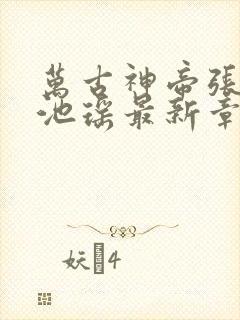 萬古神帝張
池瑤最新章
妖 4